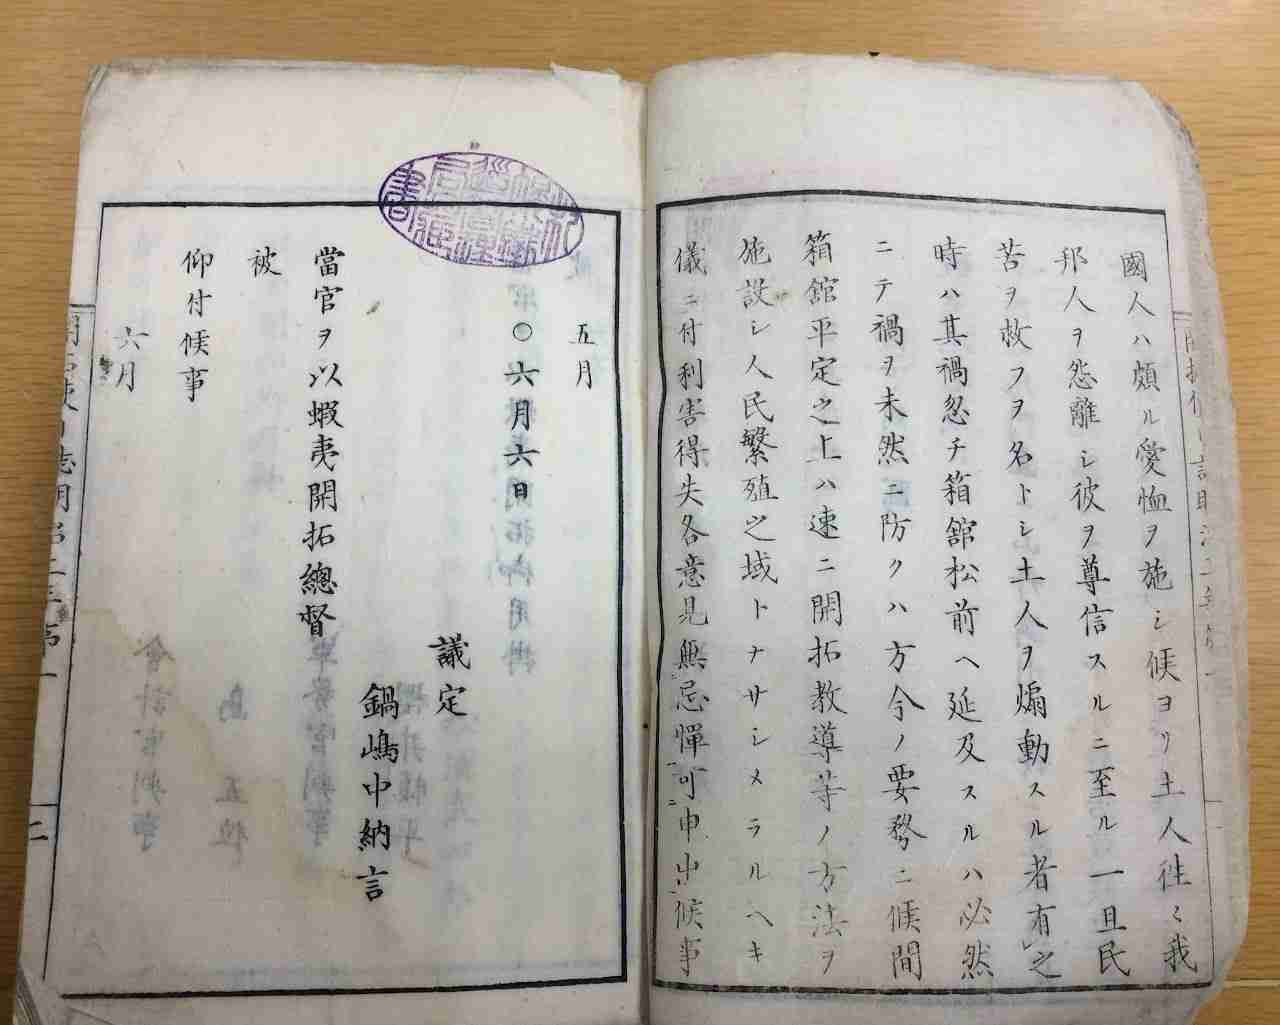 國人ハ頗ル愛恤ヲ施シ候ヨリ土人往々我
邦人ヲ怨離シ彼ヲ尊信スルニ至ル一旦民
苦ヲ救フヲ名トシ土人ヲ煽動スル者有之
時ハ其禍忽チ箱館松前ヘ延及スルハ必然
ニテ禍ヲ未然ニ防クハ方今ノ要務ニ候間
箱館平定之上ハ速ニ開拓教導等ノ方法ヲ
施設シ人民繁殖之域トナサシメラルヘキ
儀ニ付利害得失各意見無忌憚可申出候事
五月
○六月六日
議定
鍋嶋中納言
當官ヲ以蝦夷開拓總督
被
仰付候事
六月
二